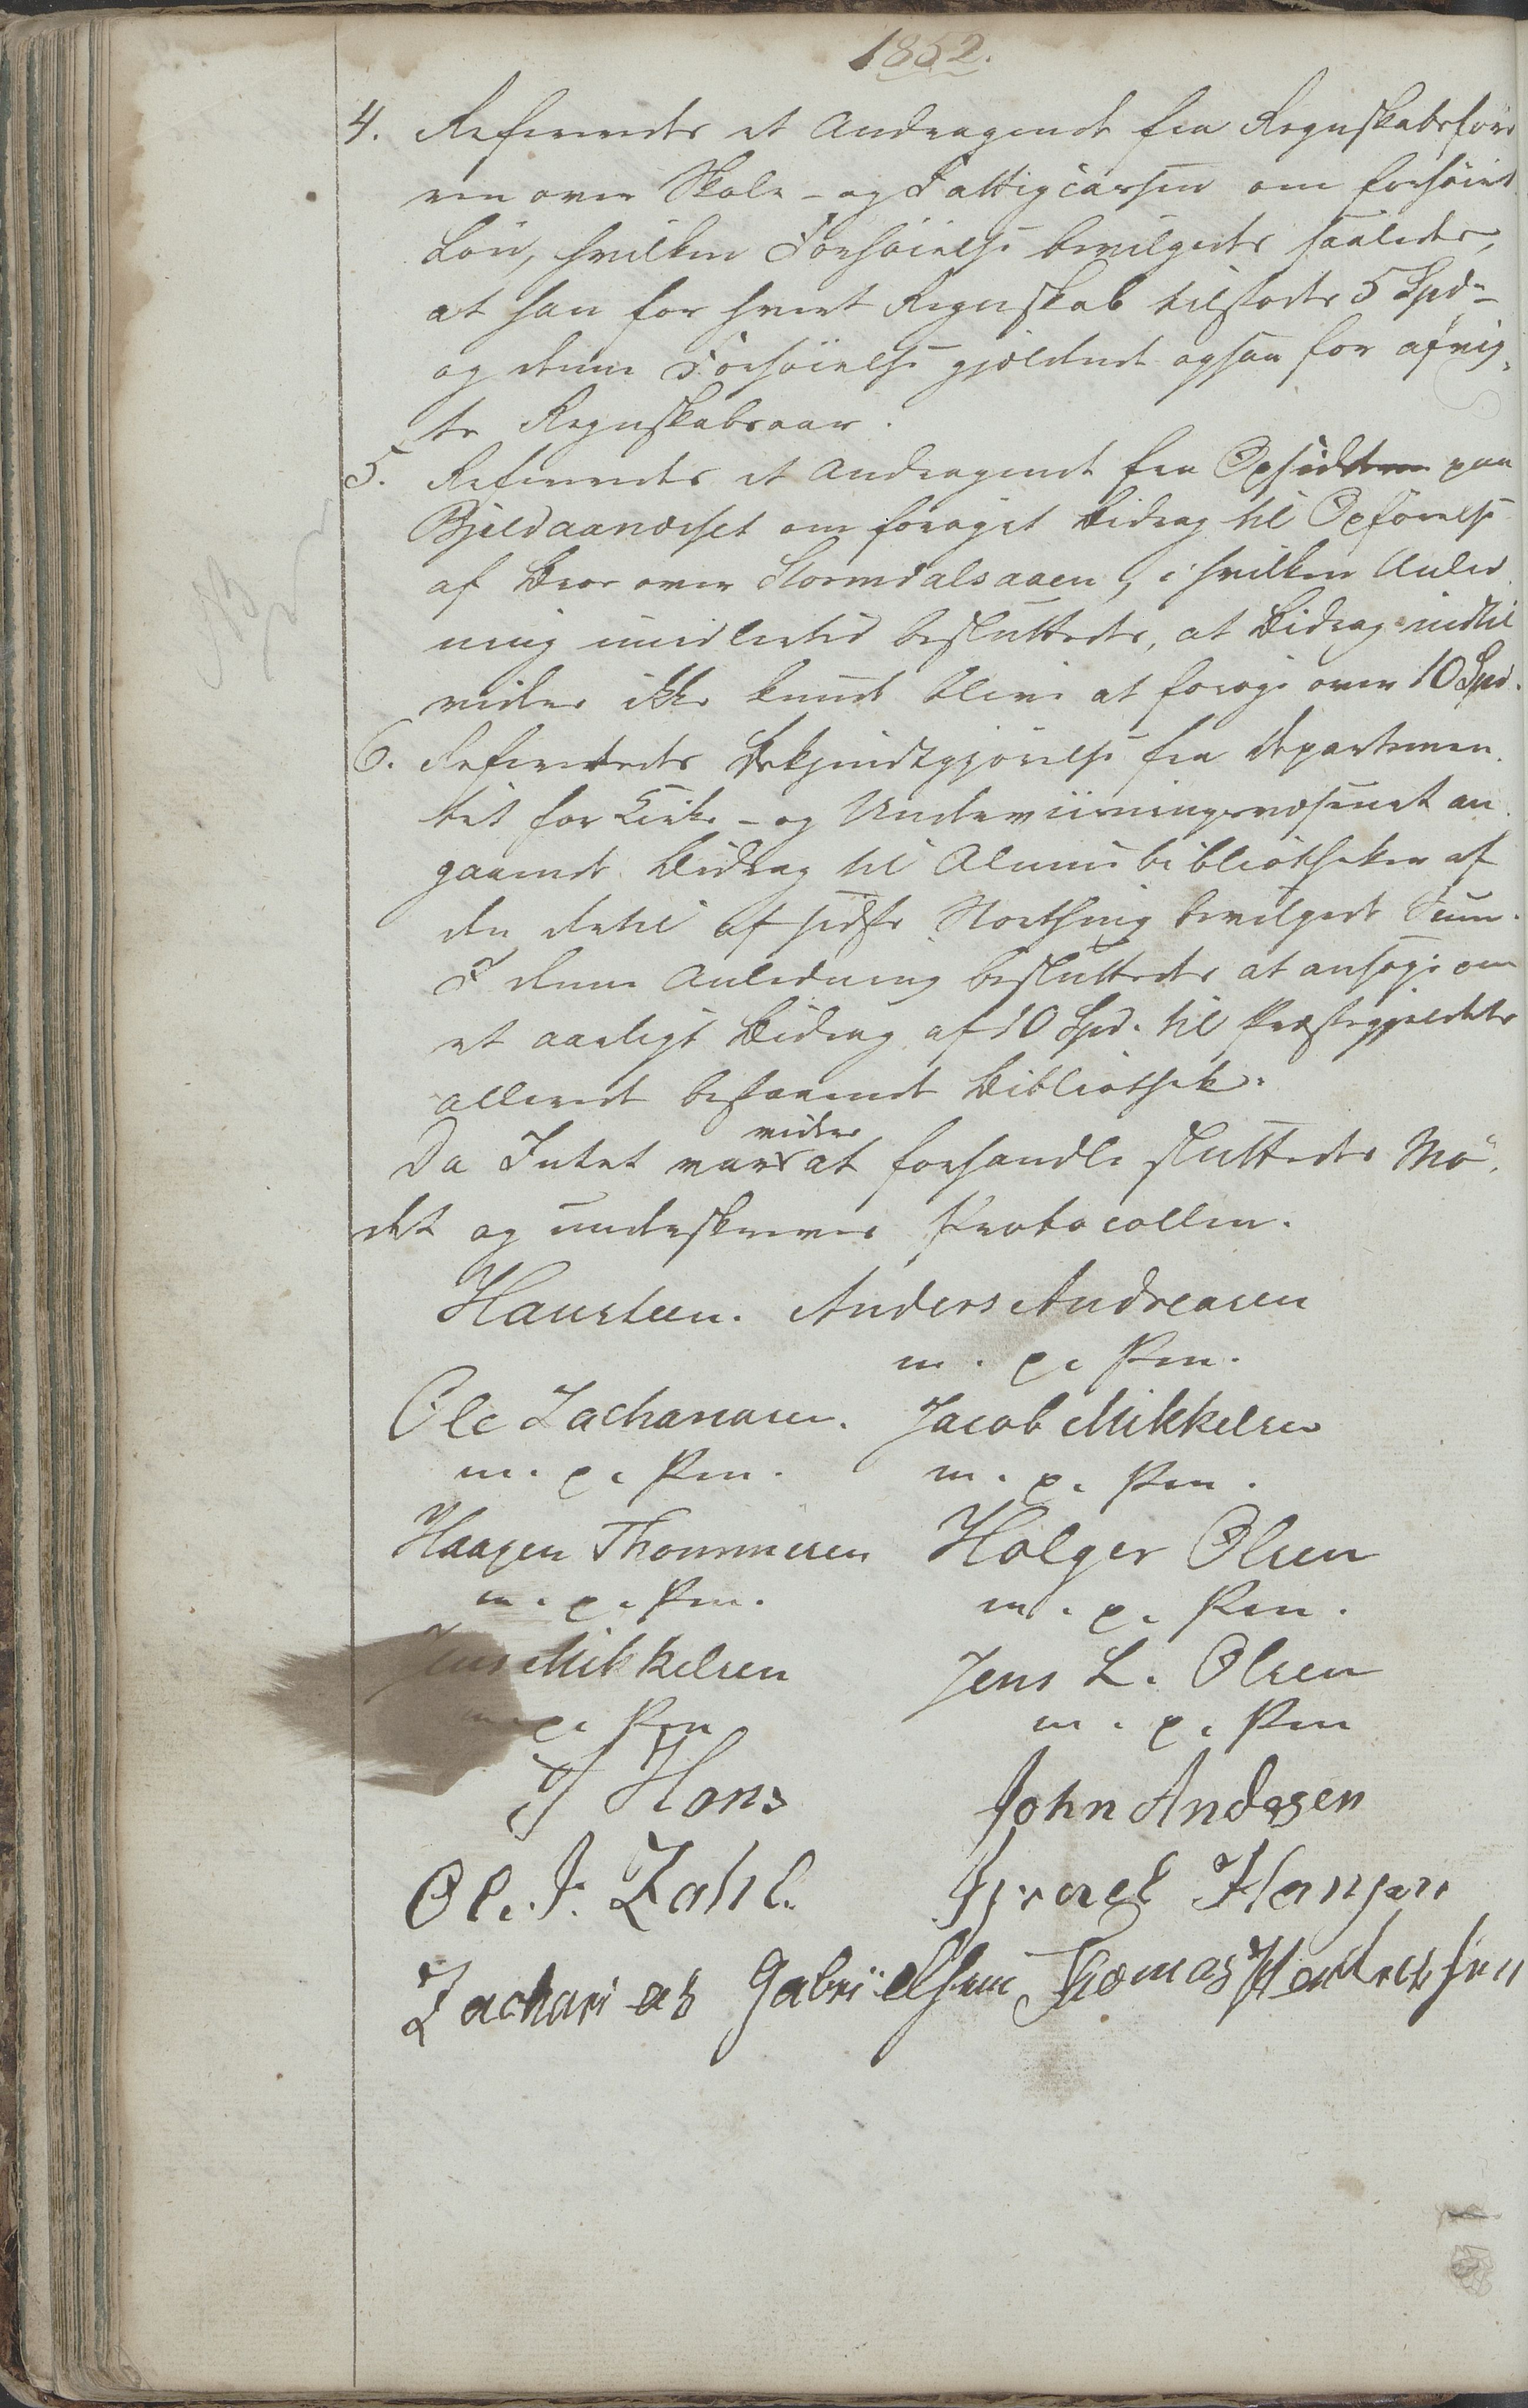 1852.
4. Refereredes et Andragende fra Regnskabsføre
ren over Skole- og Fattigcassen om forhøiet
Løn, hvilken Forhøielse bevilgedes saaledes,
at han for hvert Regnskab tilstodes 5 Spd.
og denne Forhøielse gjældende ogsaa for afvig,
te Regnskabsaar.
5. Refereredes et Andragende fra Opsidderne paa
Bjeldaanæsset om forøget Bidrag til Opførelse
af Broe over Stormdalsaaen, i hvilken Anled
ning imidlertid besluttedes, at Bidrag indtil
videre ikke kunde blive at forøge over 10 Spd.
6. Refereredes Bekjendtgjørelse fra Departemen
tet for Kirke- og Underviisningsvæsenet an
gaaende Bidrag til Almuebibliotheker af
den dertil af sidste Storthing bevilgede Sum.
I denne Anledning besluttedes at ansøge om
et aarligt Bidrag af 10 Spd. til Præstegjeldets
allerede bestaaende Bibliothek.
videre
Da Intet var at forhandle sluttedes Mø,
det og underskreves Protocollen.
Hansteen. Anders Andreasen
m. p. Pen.
Ole Zachariasen. Jacob Mikkelsen
m. p. Pen. m. p. Pen.
Haagen Thommesen Holger Olsen
m. p. Pen. m. p. Pen.
Jens Mikkelsen Jens L. Olsen
m. p. Pen m. p. Pen
J Hans John Andersen
Ol. J. Zahl. Israel Hansen
Zacharias Gabriëlsen Thomas